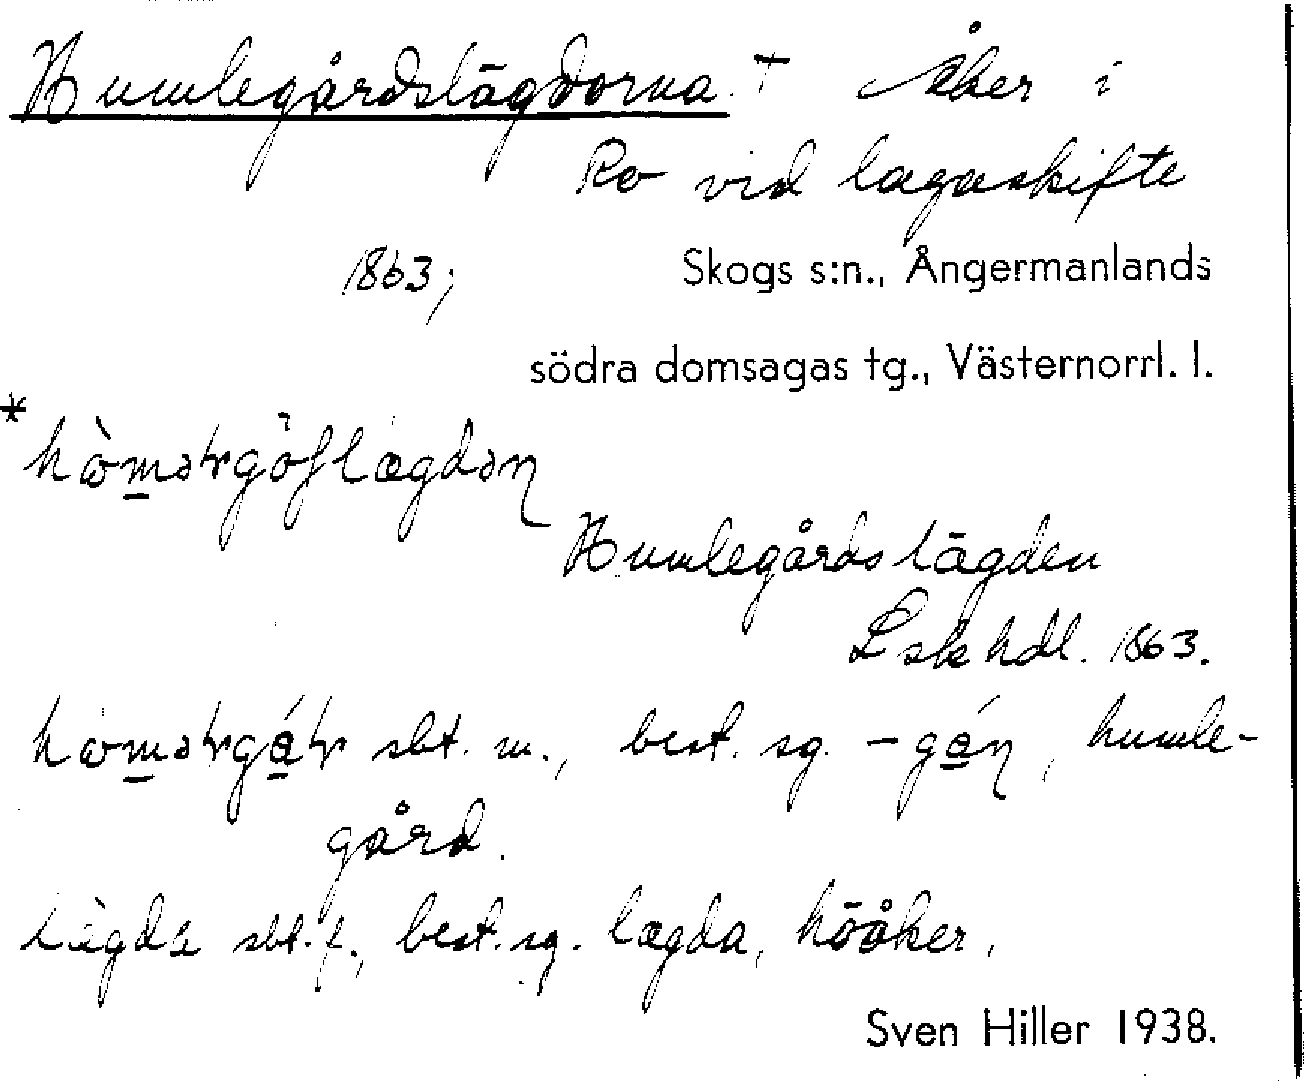 Humlegårdslägdorna. † Åker i
Ro vid lagaskifte
1863; Skogs s:n., Ångermanlands
södra domsagas tg., Västernorrl. l.
*
Humlegårdslägden
Lskhdl. 1863.
sbt. m., best. sg. humle-
gård.
sbt. f., best. sg. lægda, höåker,
Sven Hiller 1938.